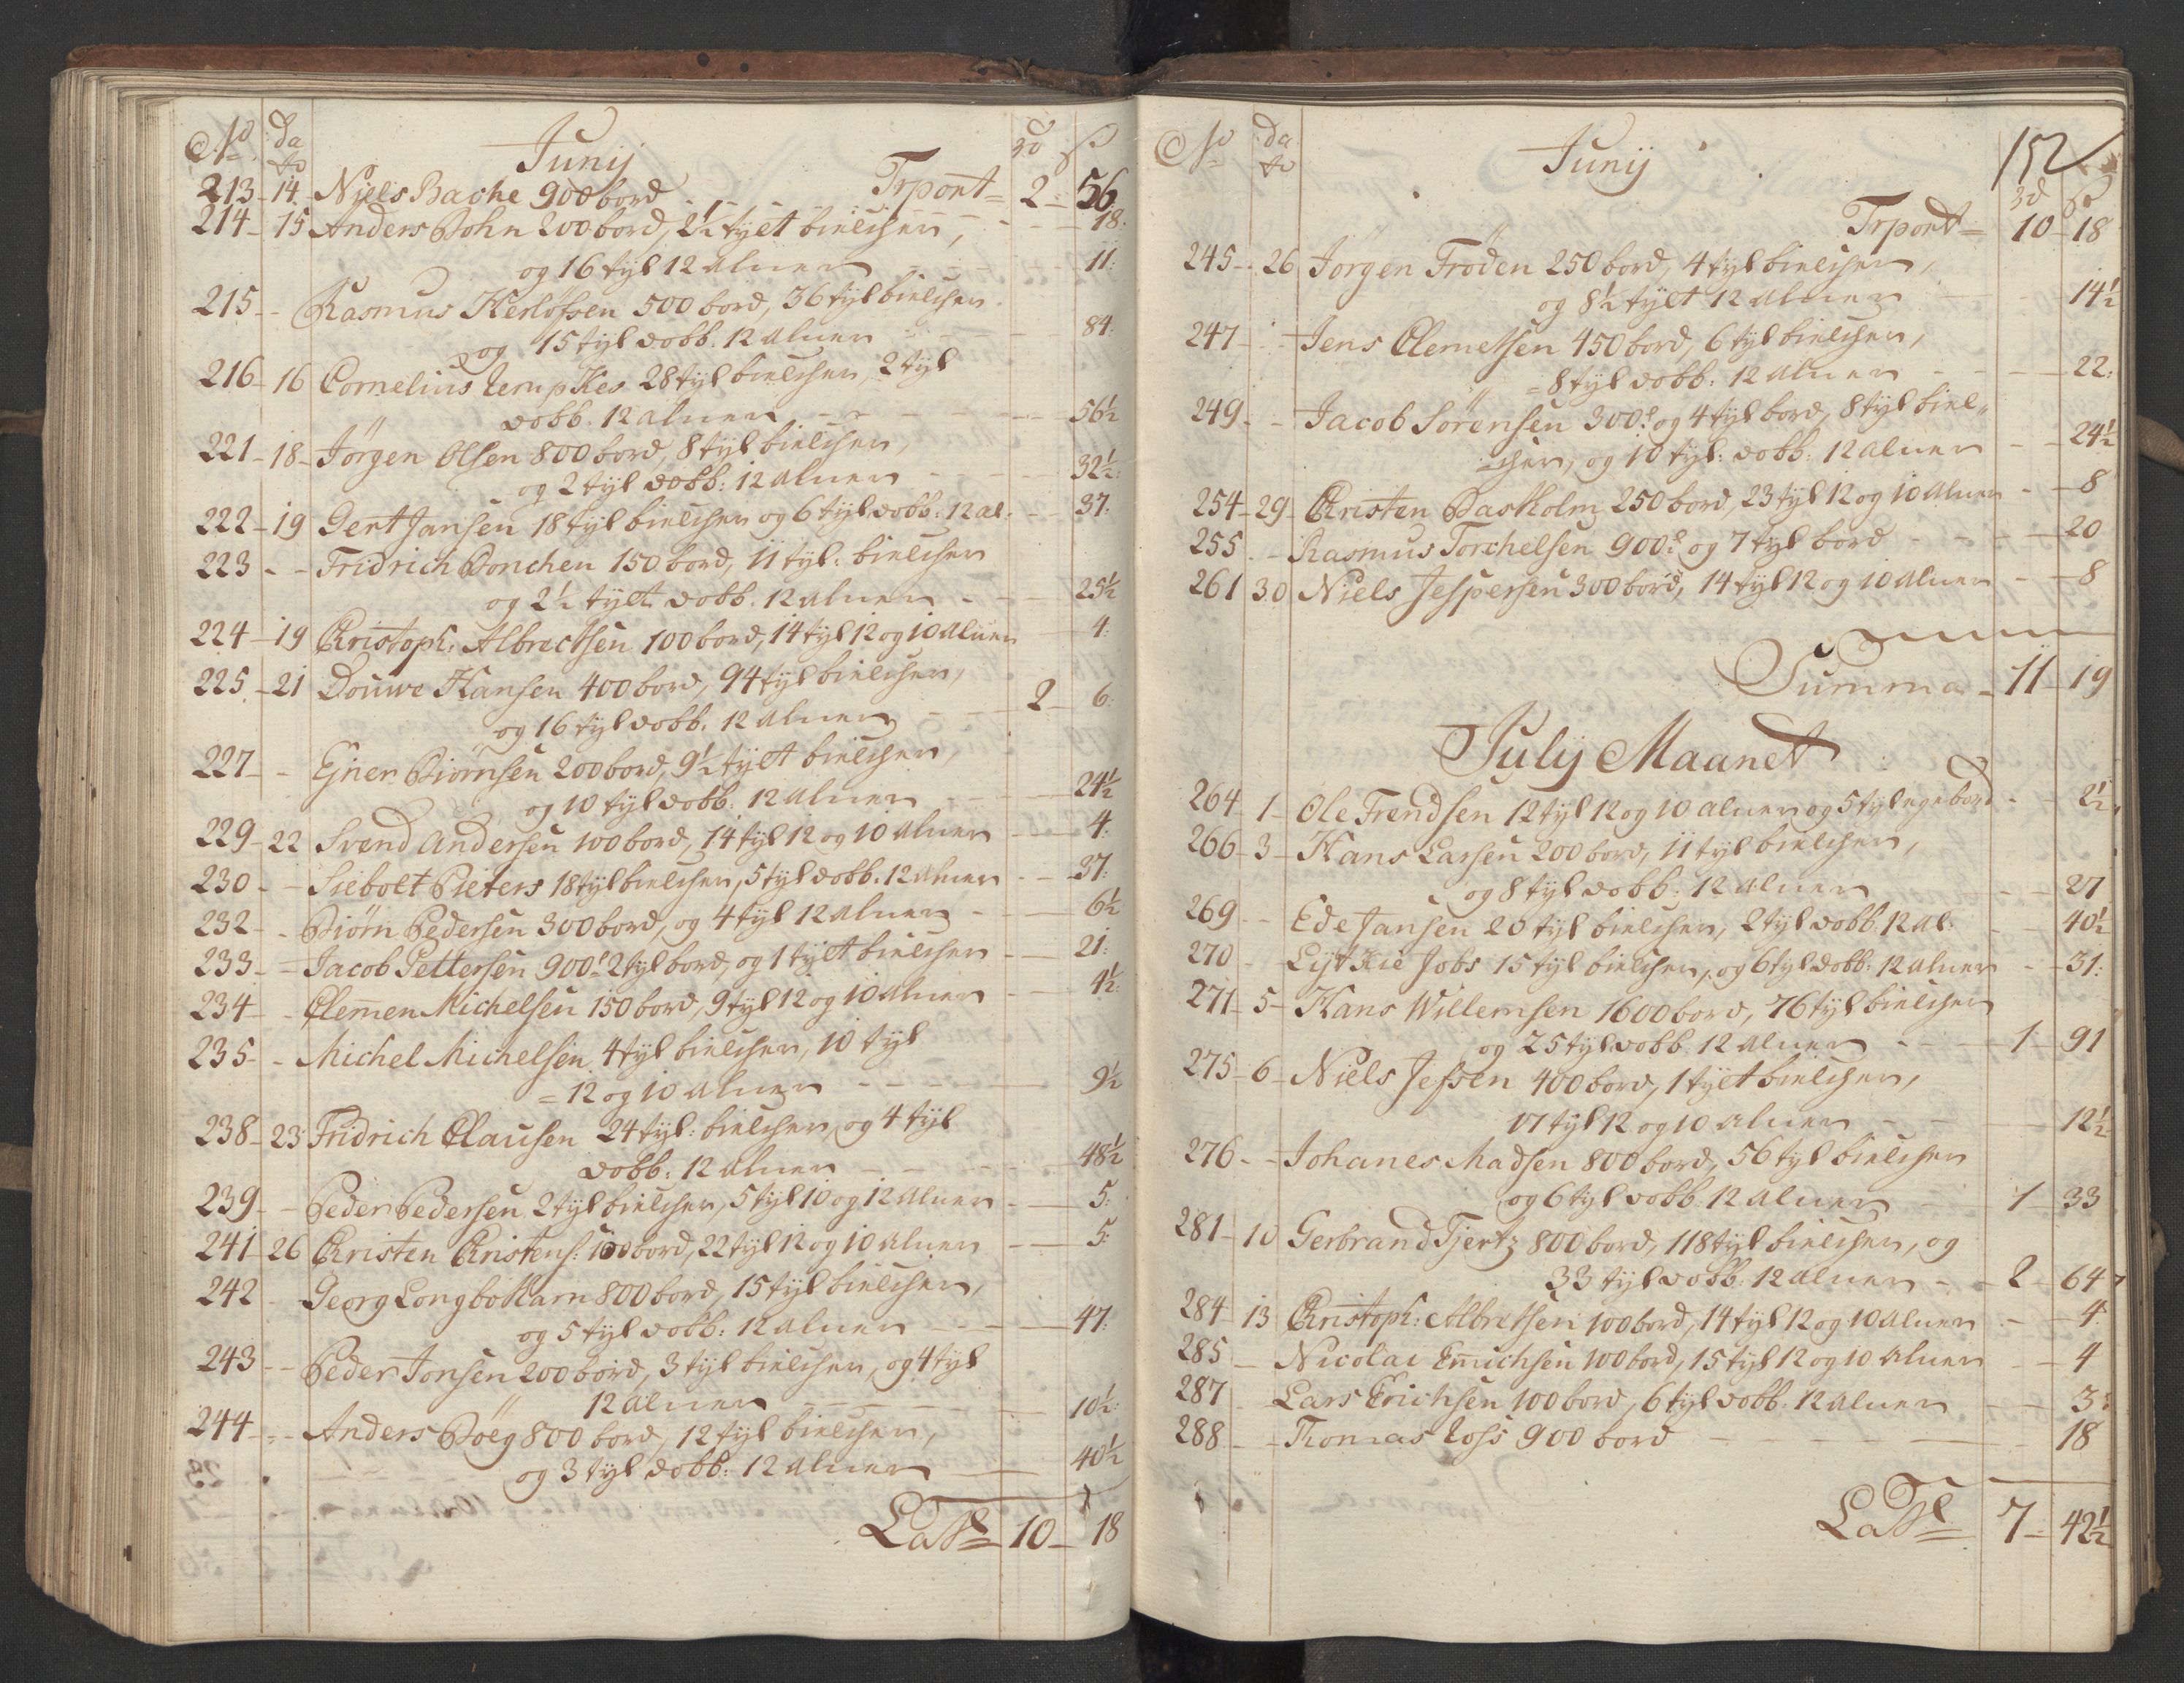 No dato Junij Rd ß
Trport 2 56
213 14 Niels Bache 900 bord 18
214 15 Anders Bohn 200 bord, 2½ tylt bielcher,
og 16 tyl 12 alner 11
215 Rasmus Kerlofsen 500 bord, 36 tyl bielcher
og 15 tyl dobb. 12 alner 84
216 16 Cornelius 28 tyl bielcher, 2 tyl
dobb. 12 alner 56½
221 18 Jörgen Olsen 800 bord, 8 tyl bielcher,
og 2 tyl dobb: 12 alner 32½
222 19 Gert Jansen 18 tyl bielcher og 6 tyl dobb: 12 al. 37
223 Fridrich Bonchen 150 bord, 11 tyl: bielcher
og 2½ tylt dobb. 12 alner 25½
224 19 Christoph: Albrectsen 100 bord, 14 tyl 12 og 10 alner 4
225 21 Douwe Hansen 400 bord, 94 tyl bielcher,
og 16 tyl dobb. 12 alner 2 6
227 Ejner Biörnsen 200 bord, 9½ tylt bielcher,
og 10 tyl dobb: 12 alner 24½
229 22 Svend Andersen 100 bord, 14 tyl 12 og 10 alner 4
230 Siebolt Pieters 18 tyl bielcher, 5 tyl dobb. 12 alner 37
232 Biörn Pedersen 300 bord, og 4 tyl 12 alner 6½
233 Jacob Pettersen 900 2 tyl bord, og 1 tylt bielcher 21
234 Clemen Michelsen 150 bord, 9 tyl 12 og 10 alner 4½
235 Michel Michelsen 4 tyl bielcher, 10 tyl
12 og 10 alner 9½
238 23 Fridrich Clausen 24 tyl: bielcher, og 4 tyl
dobb: 12 alner 48½
239 Peder Pedersen 2 tyl bielcher, 5 tyl 10 og 12 alner 5
241 26 Christen Christens: 100 bord, 22 tyl 12 og 10 alner 5
242 Georg Longbottam 800 bord, 15 tyl bielcher,
og 5 tyl dobb: 12 alner 47
243 Peder Jonsen 200 bord, 3 tyl bielcher, og 4 tyl
12 alner 10½
244 Anders Böeg 800 bord, 12 tyl bielcher,
og 3 tyl dobb: 12 alner 40½
Latl 10 18
152
No dato Junij Rd ß
Trport 10 18
245 26 Jörgen Fröden 250 bord, 4 tyl bielcher,
og 8½ tylt 12 alner 14½
247 Jens Clemetsen 450 bord, 6 tyl bielcher,
8 tyl dobb: 12 alner 22
249 Jacob Sörensen 300 og 4 tyl bord, 8 tyl biel-
cher, og 10 tyl: dobb: 12 alner 24½
254 29 Christen Bastholm 250 bord, 23 tyl 12 og 10 alner 8
255 Rasmus Torchelsen 900 og 7 tyl bord 20
261 30 Niels Jespersen 300 bord, 14 tyl 12 og 10 alner 8
Summa 11 19
Julij Maanet
264 1 Ole Trendsen 12 tyl 12 og 10 alner og 5 tyl ege bord 2½
266 3 Hans Larsen 200 bord, 11 tyl bielcher,
og 8 tyl dobb: 12 alner 27
269 Ede Jansen 20 tyl bielcher, 2 tyl dobb: 12 al: 40½
270 Lijtkie Jobs 15 tyl bielcher, og 6 tyl dobb: 12 alner 31
271 5 Hans Willemsen 1600 bord, 76 tyl bielcher
og 25 tyl dobb. 12 alner 1 91
275 6 Niels Jessen 400 bord, 1 tylt bielcher,
17 tyl 12 og 10 alner 12½
276 Johanes Madsen 800 bord, 56 tyl bielcher
og 6 tyl dobb. 12 alner 1 33
281 10 Gerbrand Tjertz 800 bord, 118 tyl bielcher, og
33 tyl dobb: 12 alner 2 64
284 13 Christoph: Albretsen 100 bord, 14 tyl 12 og 10 alner 4
285 Nicolai Emichsen 100 bord, 15 tyl 12 og 10 alner 4
287 Lars Erichsen 100 bord, 6 tyl dobb. 12 alner 3
288 Thomas Foss 900 bord 18
Latl 7 42½